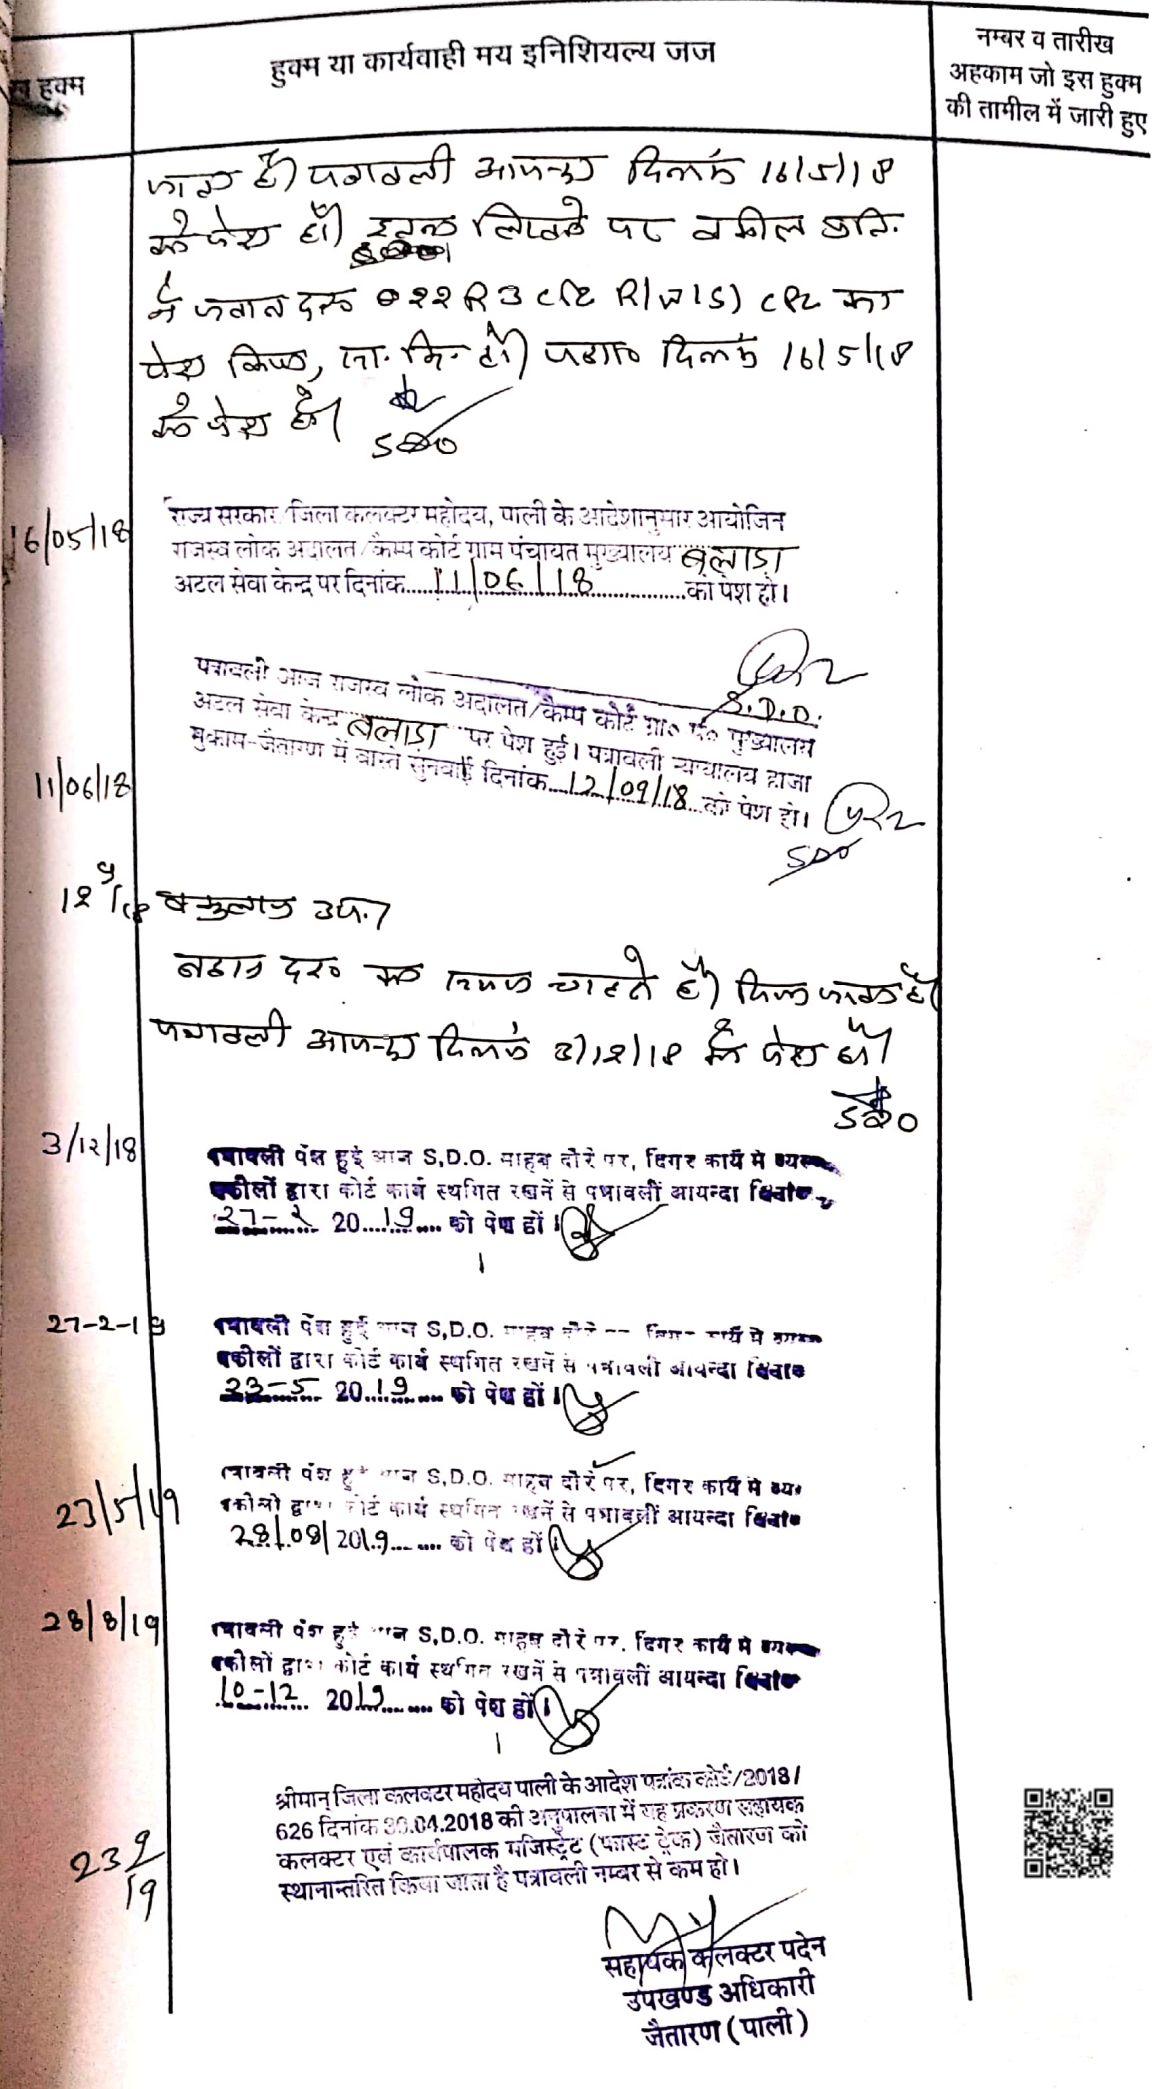 हुक्म
हुक्म या कार्यवाही मय इनिशियल्य जज
नम्बर व तारीख
अहकाम जो इस हुक्म
की तामील में जारी हुए
जाता है। पत्रावली आयन्दा दिनांक 16/5/18
को पेश हो। इतना लिखने पर वकील प्रति.
ने जवाब दर० O22 R3 CPC R/W 151 CPC का
पेश किया, शा. मि. हो। पत्रा० दिनांक 16/5/18
को पेश हो।
SDO
16/05/18
राज्य सरकार/जिला कलक्टर महोदय, पाली के आदेशानुसार आयोजित
राजस्व लोक अदालत/कैम्प कोर्ट ग्राम पंचायत मुख्यालय बलाड़ा
अटल सेवा केन्द्र पर दिनांक....11/06/18....को पेश हो।
S.D.O.
11/06/18
पत्रावली आज राजस्व लोक अदालत/कैम्प कोर्ट ग्रा० पं० मुख्यालय
अटल सेवा केन्द्र बलाड़ा पर पेश हुई। पत्रावली न्यायालय हाजा
मुकाम-जैतारण में वास्ते सुनवाई दिनांक...12/09/18...को पेश हो।
SDO
12/9/18 वकुलाय उप.।
बहास दर० का समय चाहते है। दिया जाता है।
पत्रावली आयन्दा दिनांक 3/12/18 को पेश हो।
SDO
3/12/18
पत्रावली पेश हुई आज S.D.O. साहब दौरे पर, दिगर कार्य मे व्यस्त
वकीलों द्वारा कोर्ट कार्य स्थगित रखनें से पत्रावलीं आयन्दा दिनांक
27-2 20....19.... को पेश हों।
27-2-19
पत्रावली पेश हुई आज S.D.O. साहब दौरे पर दिगर कार्य मे व्यस्त
वकीलों द्वारा कोर्ट कार्य स्थगित रखनें से पत्रावली आयन्दा दिनांक
23-5 20..19.... को पेश हों।
23/5/19
पत्रावली पेश हुई आज S.D.O. साहब दौरे पर, दिगर कार्य मे व्यस्त
वकीलो द्वारा कोर्ट कार्य स्थगित रखनें से पत्रावलीं आयन्दा दिनांक
28/08/2019.... को पेश हों
28/8/19
पत्रावली पेश हुई आज S.D.O. साहब दौरे पर, दिगर कार्य मे व्यस्त
वकीलों द्वारा कोर्ट कार्य स्थगित रखनें से पत्रावलीं आयन्दा दिनांक
10-12 2019.... को पेश हों।
23 9/19
श्रीमान् जिला कलक्टर महोदय पाली के आदेश पत्रांक कोर्ट/2018/
626 दिनांक 30.04.2018 की अनुपालना में यह प्रकरण सहायक
कलक्टर एवं कार्यपालक मजिस्ट्रेट (फास्ट ट्रेक) जैतारण को
स्थानान्तरित किया जाता है पत्रावली नम्बर से कम हो।
सहायक कलक्टर पदेन
उपखण्ड अधिकारी
जैतारण (पाली)